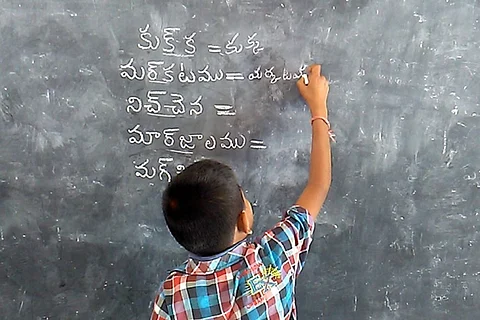 కుక్‌క = కుక్క
మర్‌కటము = మర్కటము
నిచ్‌చెన =
మార్‌జాలము =
మగ్‌